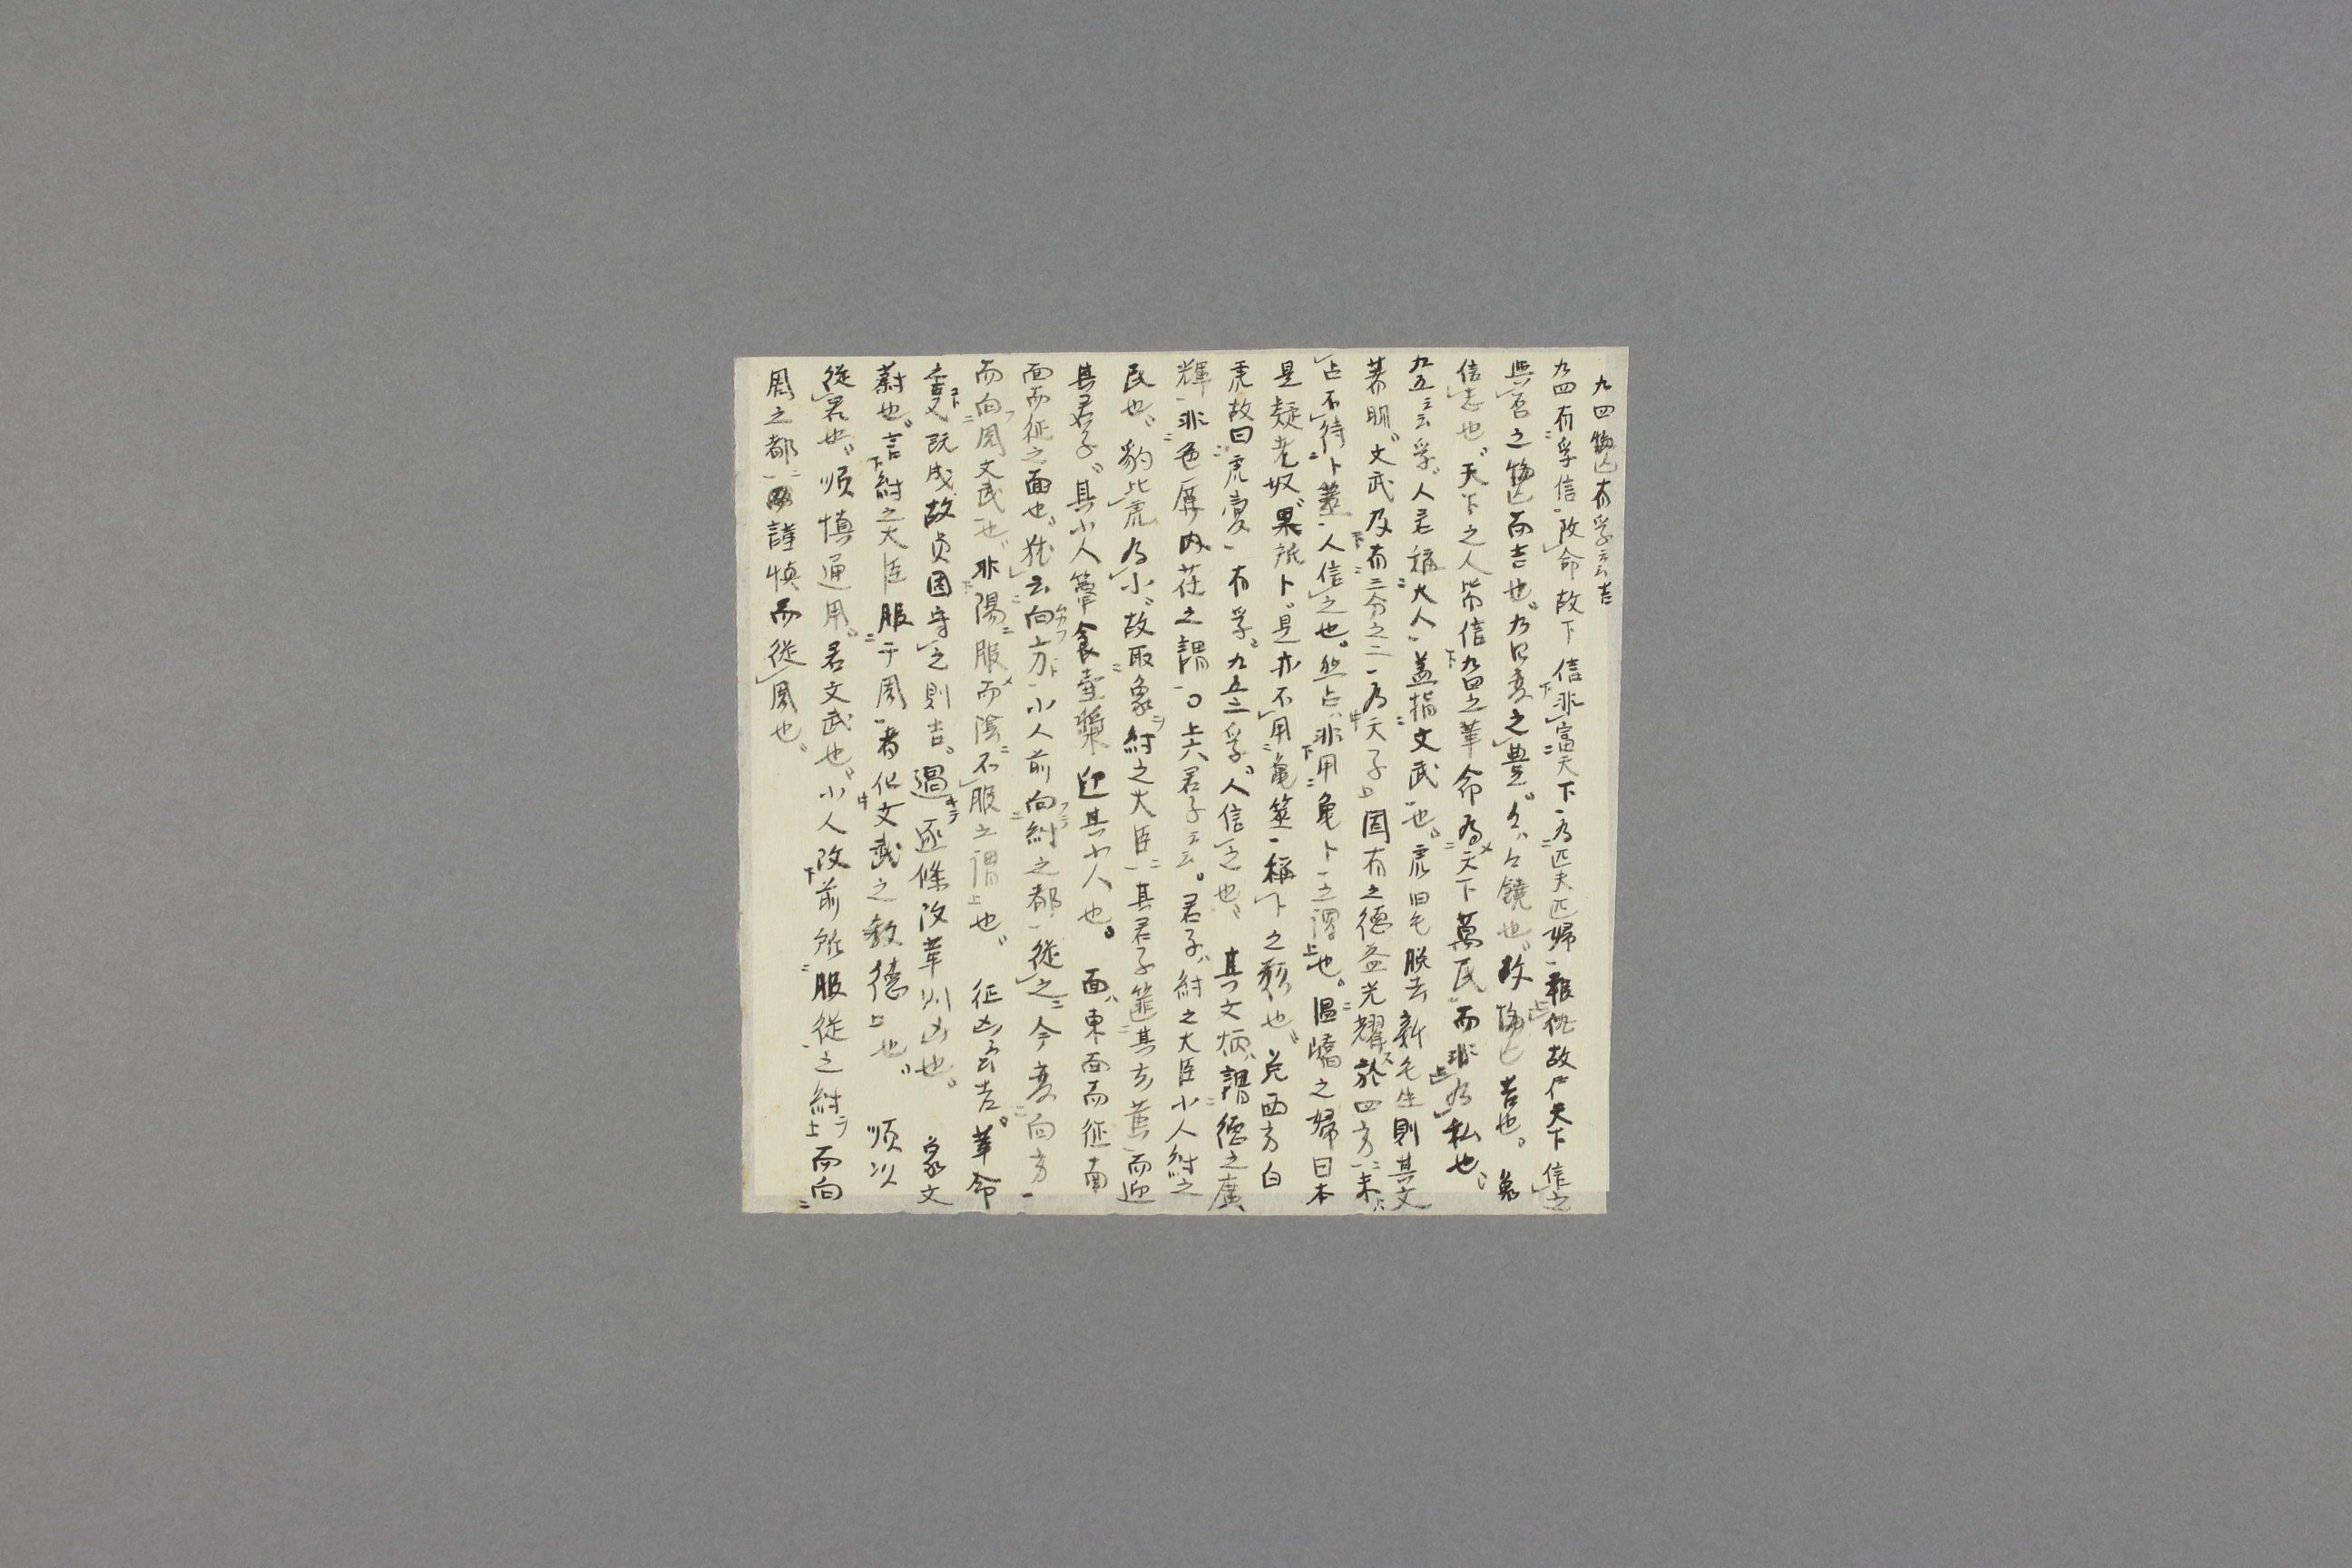 九四悔亡有孚云云吉
九四有孚信改命故下信非富天下為匹夫匹婦報仇故尸天下信之
與否之悔亡而吉也乃曰変之豊饒也改悔亡吉也象
信志也天下之人皆信九四之革命為天下萬民而非為私也
九五云云孚人君稱大人蓋指文武也虎旧毛脱去新毛生則其文
著明文武及有三分之二為天子固有之德益光耀於四方未
占不待卜筮人信之也然占非用亀卜之謂也温嶠之婦曰本
是疑老奴果所卜是亦不用亀筮稱卜之類也兌西方白
虎故曰虎変有孚九五之孚人信之也其文炳謂德之廣
輝非色厚内荏之謂○上六君子云云君子紂之大臣小人紂之
民也豹比虎為小故取象紂之大臣其君子篚其玄黄而迎
其君子其小人簞食壷漿迎其小人也面東面而征南
面而征之面也猶云向方小人前向紂之都從之今変向方
而向周文武也非陽服而陰不服之謂也征凶云云吉革命
変既成故貞固守之則吉過逐條改革則凶也象文
蔚也言紂之大臣服于周者化文武之教德也順以
從君也順慎通用君文武也小人改前所服從之紂而向
周之都謹慎而從周也